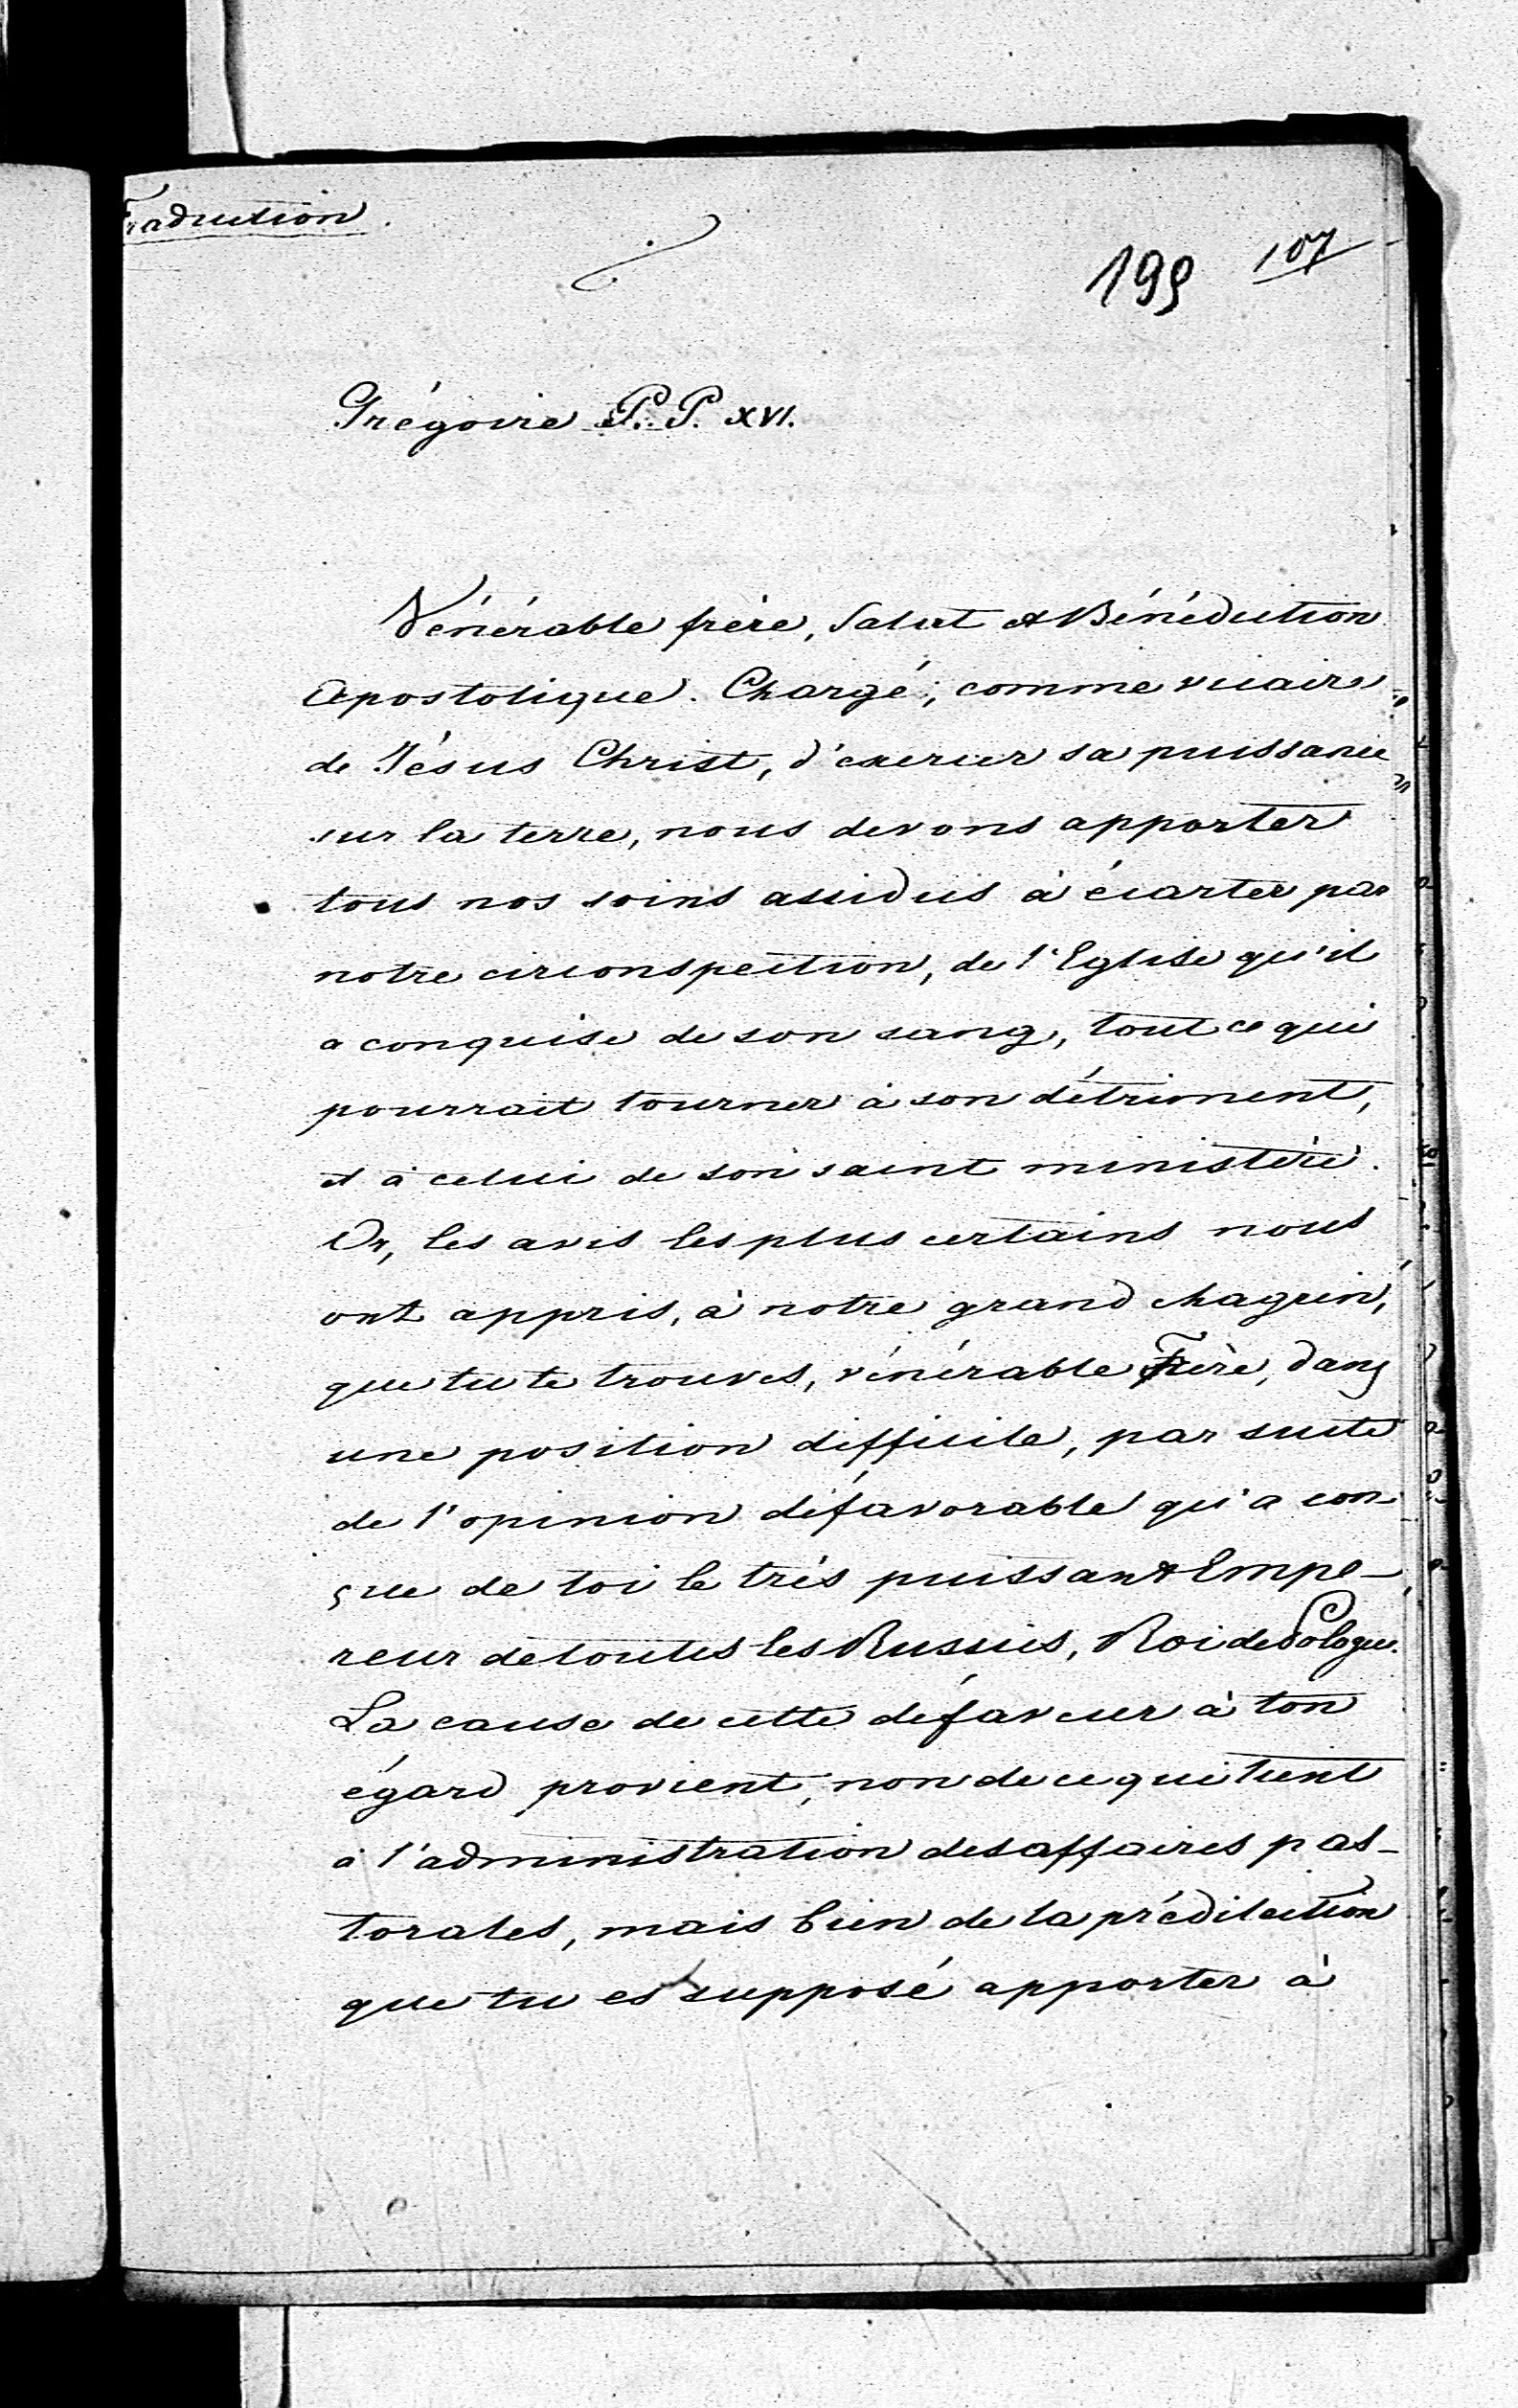 Traduction.
199 107
Grégoire P. P. XVI.
Vénérable frère, Salut et Bénédiction
Apostolique. Chargé, comme vicaire
de Jésus Christ, d'exercer sa puissance
sur la terre, nous devons apporter
tous nos soins assidus à écarter par
notre circonspection, de l'Eglise qu'il
a conquise de son sang, tout ce qui
pourrait tourner à son détriment,
et à celui de son saint ministère.
Or, les avis les plus certains nous
ont appris, à notre grand chagrin,
que tu te trouves, vénérable Frère, dans
une position difficile, par suite
de l'opinion défavorable qu'a con-
çue de toi le très puissant Empe-
reur de toutes les Russies, Roi de Pologne.
La cause de cette défaveur à ton
égard provient, non de ce qui tient
à l'administration des affaires pas-
torales, mais bien de la prédilection
que tu es supposé apporter à